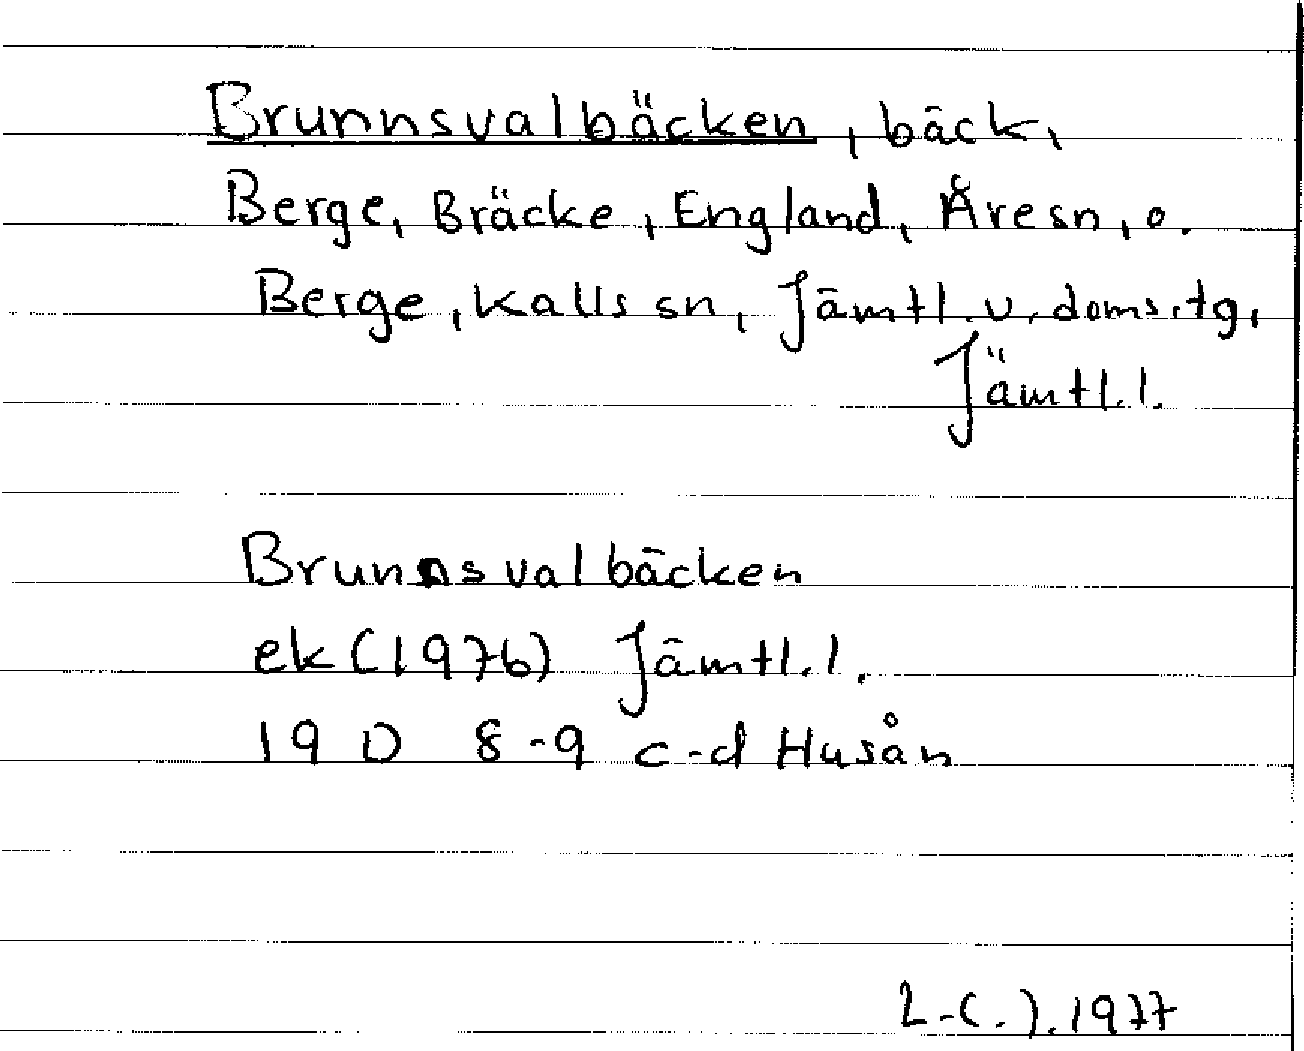 Brunnsvalbäcken, bäck,
Berge, Bräcke, England, Åre sn, o.
Berge, Kalls sn, Jämtl. v. doms.tg,
Jämtl. l.
Brunnsvalbäcken
ek (1976) Jämtl. l.
19 D 8-9 c-d Husån
1977